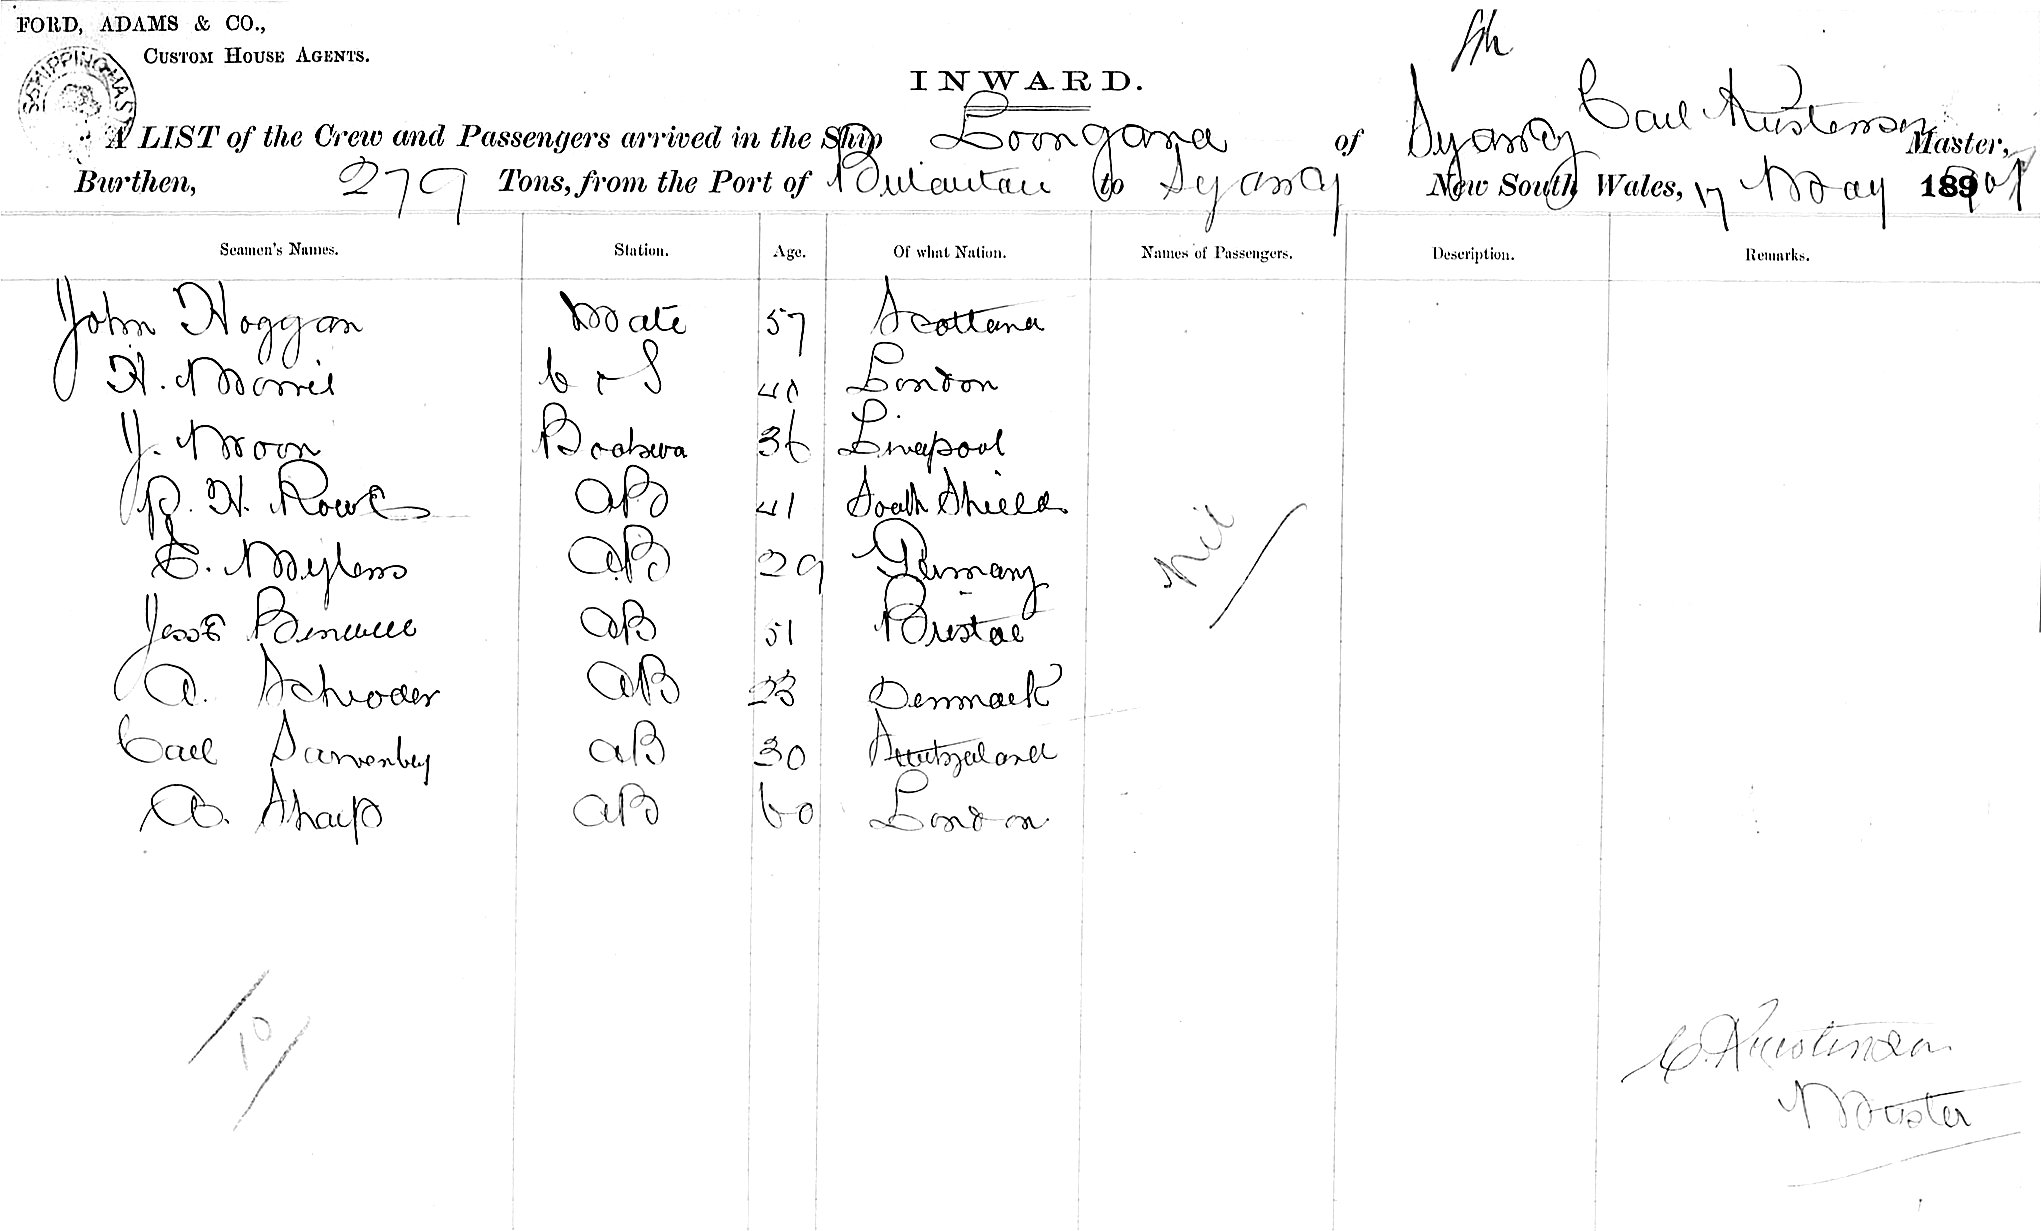 FORD, ADAMS & CO.,
CUSTOM HOUSE AGENTS.
SHIPPING MAS
INWARD.
A LIST of the Crew and Passengers arrived in the Ship Loongana of Sydney Carl Kustenson Master,
Burthen, 279 Tons, from the Port of to Sydney New South Wales, 17 May 189 1901
Seamen's Names. Station. Age. Of what Nation. Names of Passengers. Description. Remarks.
John Hoggan Mate 57 Scotland
H. Morris C & S 40 London
J. Moon Boatswa 36 Liverpool
R. H. Rowe AB 41 South Shields
AB 29 Germany
Nil
Benwell AB 51 Bristol
A. Schroder AB 23 Denmark
Carl AB 30 Switzeland
A. Sharp AB 60 London
10
C. Kustenson
Master